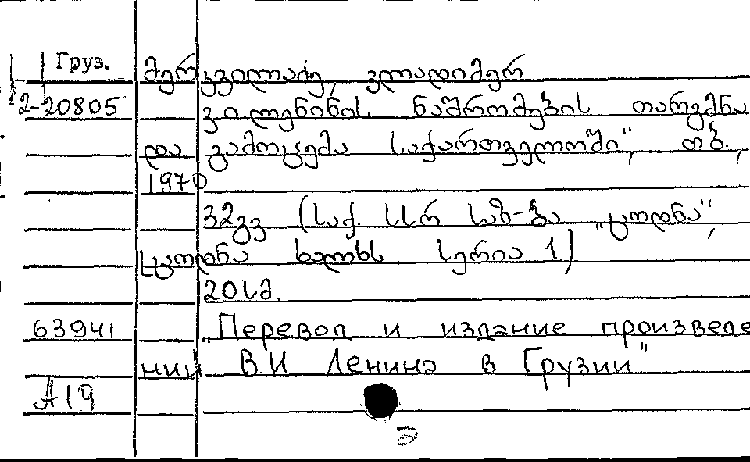 Груз. მერკვილაძე, ვლადიმერ
2-20805 ვ. ი. ლენინის ნაშრომების თარგმნა
და გამოცემა საქართველოში", თბ.,
1970
32გვ (საქ. სსრ საზ-ბა „ცოდნა",
[ცოდნა ხალხს სერია 1)
20სმ.
63941 Перевод и издание произведе
ний В.И Ленина в Грузии"
А19